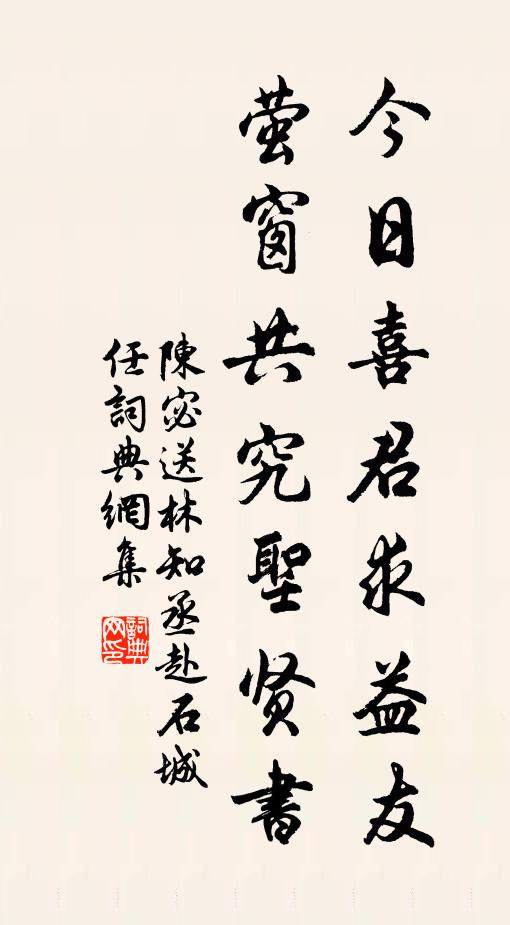 今日喜君求益友
萤窗共究聖贤書
陳宓送林知丞赴石城
任詞典網集
詞典网印